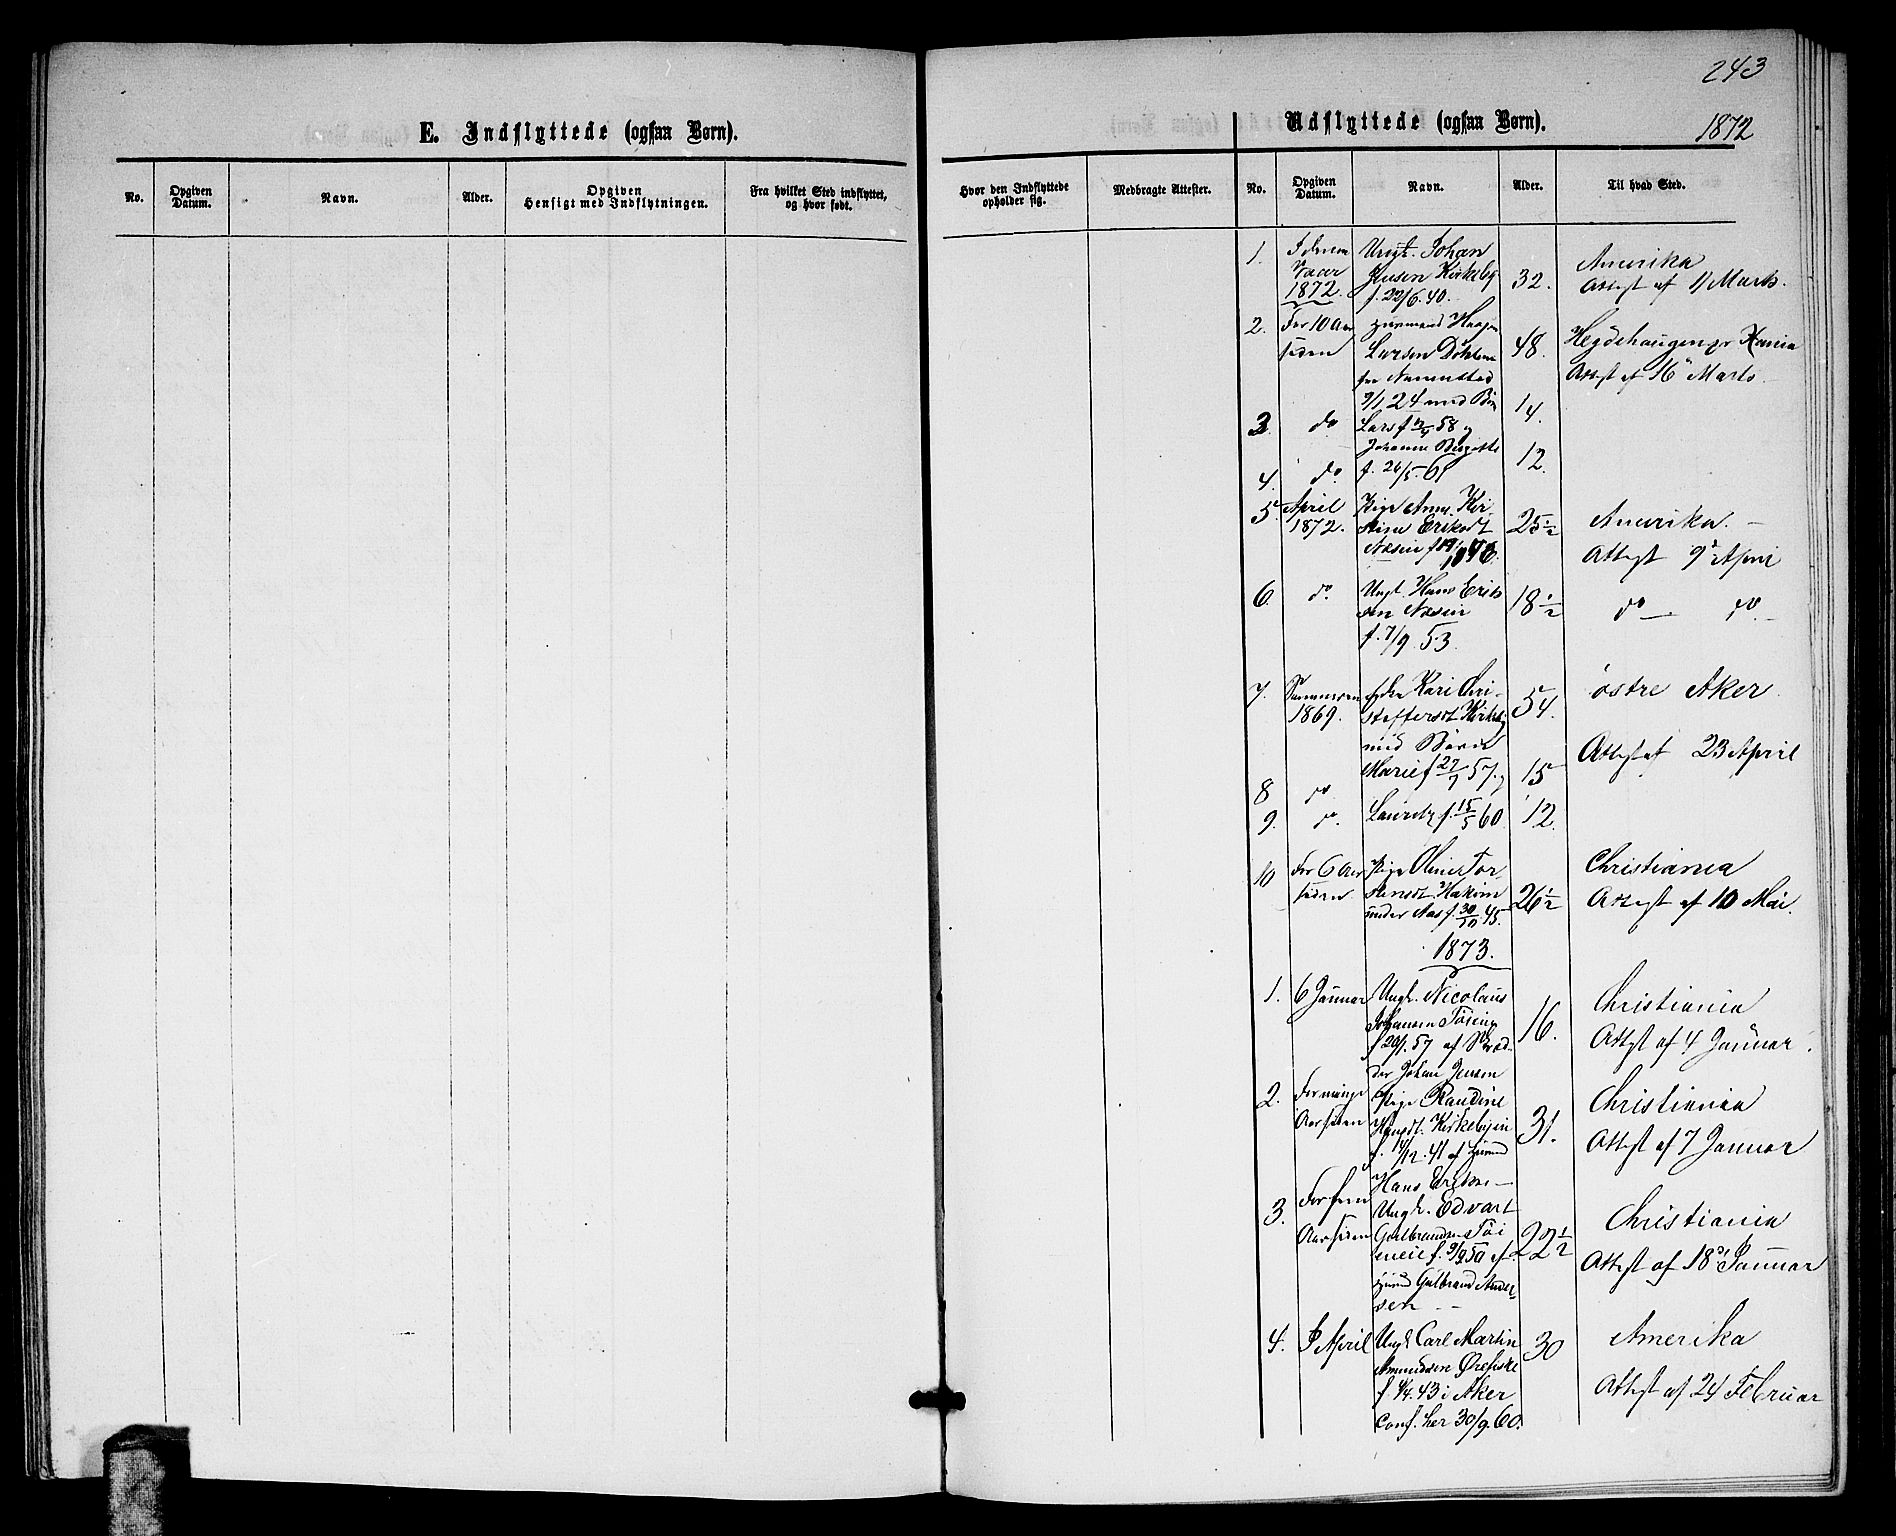 243
E. Indflyttede (ogsaa Børn).
Udflyttede (ogsaa Børn).
1872
No.
Opgiven Datum.
Navn.
Alder.
Opgiven Hensigt med Indflytningen.
Fra hvilket Sted indflyttet, og hvor født.
Hvor den Indflyttede opholder sig.
Medbragte Attester.
No.
Opgiven Datum.
Navn.
Alder.
Til hvad Sted.
1. Ungk. Johan
Vaar Jensen Kirkeby 32. Amerika
1872. f. 22/6.40. Attest af 11 Marts.
2. For 10 Aar Huusmand
siden Larsen 48.
fra Attest af 16 Marts
9/1 24 med 14.
3. do Lars f. 58
Johanne 12.
4. do f. 26/5.61
5. April Pige Anna Kir-
1872. stine Eriksdt 25½ Amerika. —
Næsin f. Attest 9 April
6. do. Ungk. Hans Erik-
sen Næsin 18½ do — do. —
f. 7/9 53.
7. Sommeren Enke Kari Chri- østre Aker
1869. stoffersdt 54.
med Børn Attest af 23 April
8 do Marie f. 27/7 57 15
9. do. f. 15/5 60. 12.
10 For 6 Aar Pige Oline Tor- Christiania
siden stensdt. 26½ Attest af 10 Mai.
under Aas f. 30/10 45.
1873.
1. 6 Januar Ungk. Nicolaus Christiania
Johansen 16. Attest af 4 Januar.
f 20/1. 57 af Skræd-
der Johan Jensen
2. For mange Pige Randine Christiania
Aar siden Hansdt. Kirkebyein 31. Attest af 7 Januar
f. /12. 41 af Huusmd
Hans —
3. For fem Ungk. Edvart Christiania
Aar siden Gulbrandsen 22½ Attest af 18 Januar
f. 9/9 50 af
Huusmd Gulbrand Ander-
sen — —
4. April Ungk Carl Martin 30 Amerika
Amundsen Attest af 24 Februar
f. 4/4. 43 i Aker
conf. her 30/9. 60.